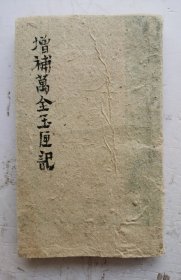 增補萬全玉匣記